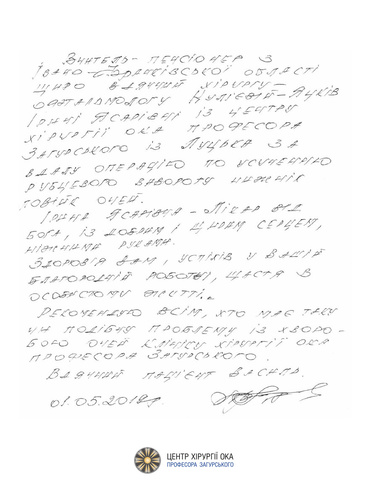 Вчитель - пенсіонер з
Івано-Франківської області
щиро вдячний хірургу -
офтальмологу Нулієвій-Яцків
Ірині Ясарівні із центру
хірургії ока професора
Загурського із Луцька за
вдалу операцію по усуненню
рубцевого завороту нижніх
повік очей.
Ірина Ясарівна - Лікар від
Бога, із добрим і щирим серцем,
ніжними руками.
Здоров'я Вам, успіхів у Вашій
благородній роботі, щастя в
особистому житті.
Рекомендую всім, хто має таку
чи подібну проблему із хворо-
бою очей клініку хірургії ока
професора Загурського.
Вдячний пацієнт Василь.
01.05.2018р
ЦЕНТР ХІРУРГІЇ ОКА
ПРОФЕСОРА ЗАГУРСЬКОГО